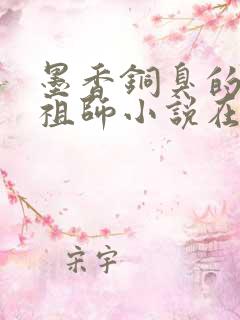 墨香銅臭的
祖師小說在
宋宇